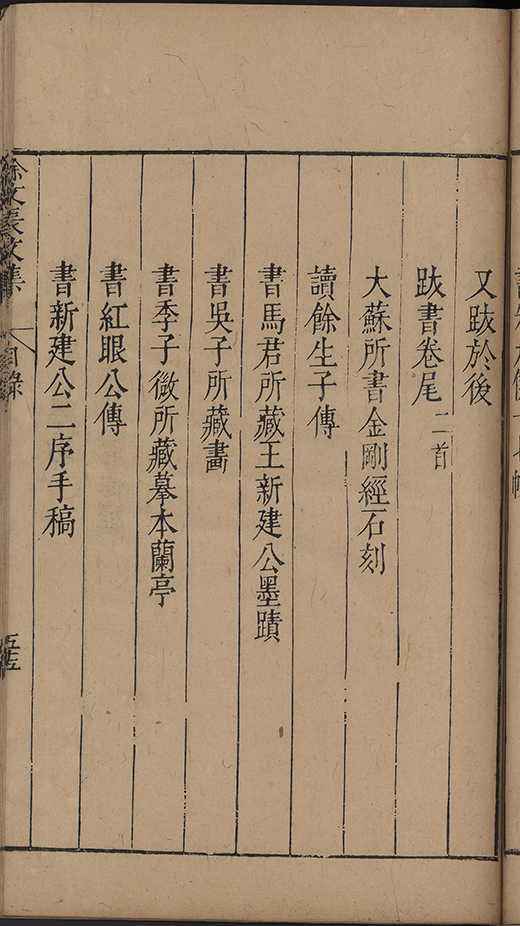 又跋於後
跋書卷尾 二首
大蘇所書金剛經石刻
讀餘生子傳
書馬君所藏王新建公墨蹟
書吳子所藏畵
書季子微所藏摹本蘭亭
書紅眼公傳
書新建公二序手稿
徐文長文集 目錄